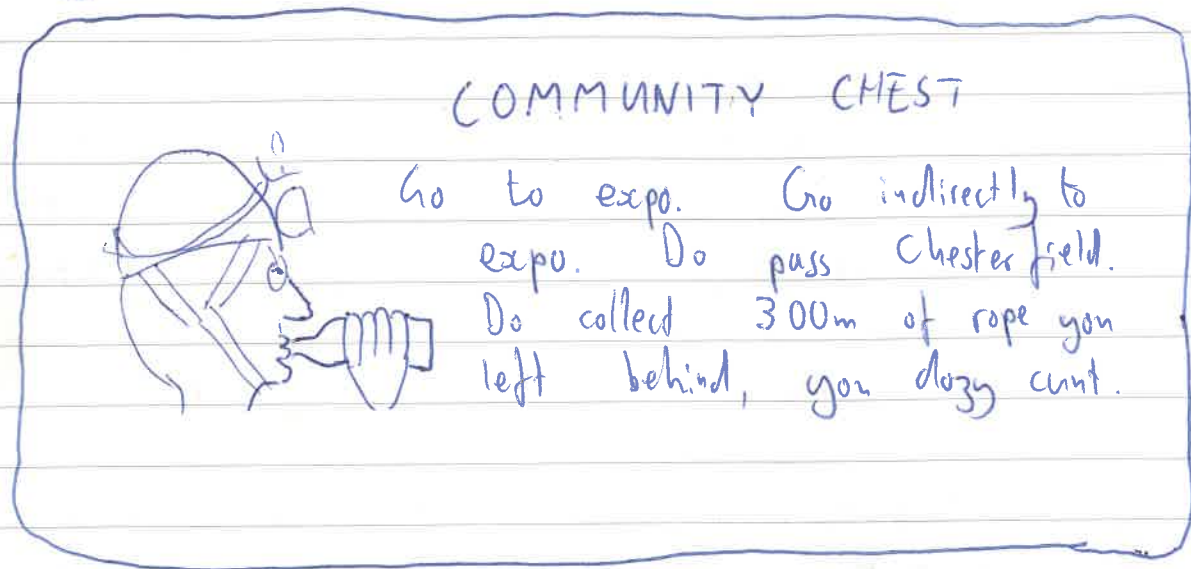 COMMUNITY CHEST
Go to expo. Go indirectly to
expo. Do pass Chesterfield.
Do collect 300m of rope you
left behind, you dozy cunt.